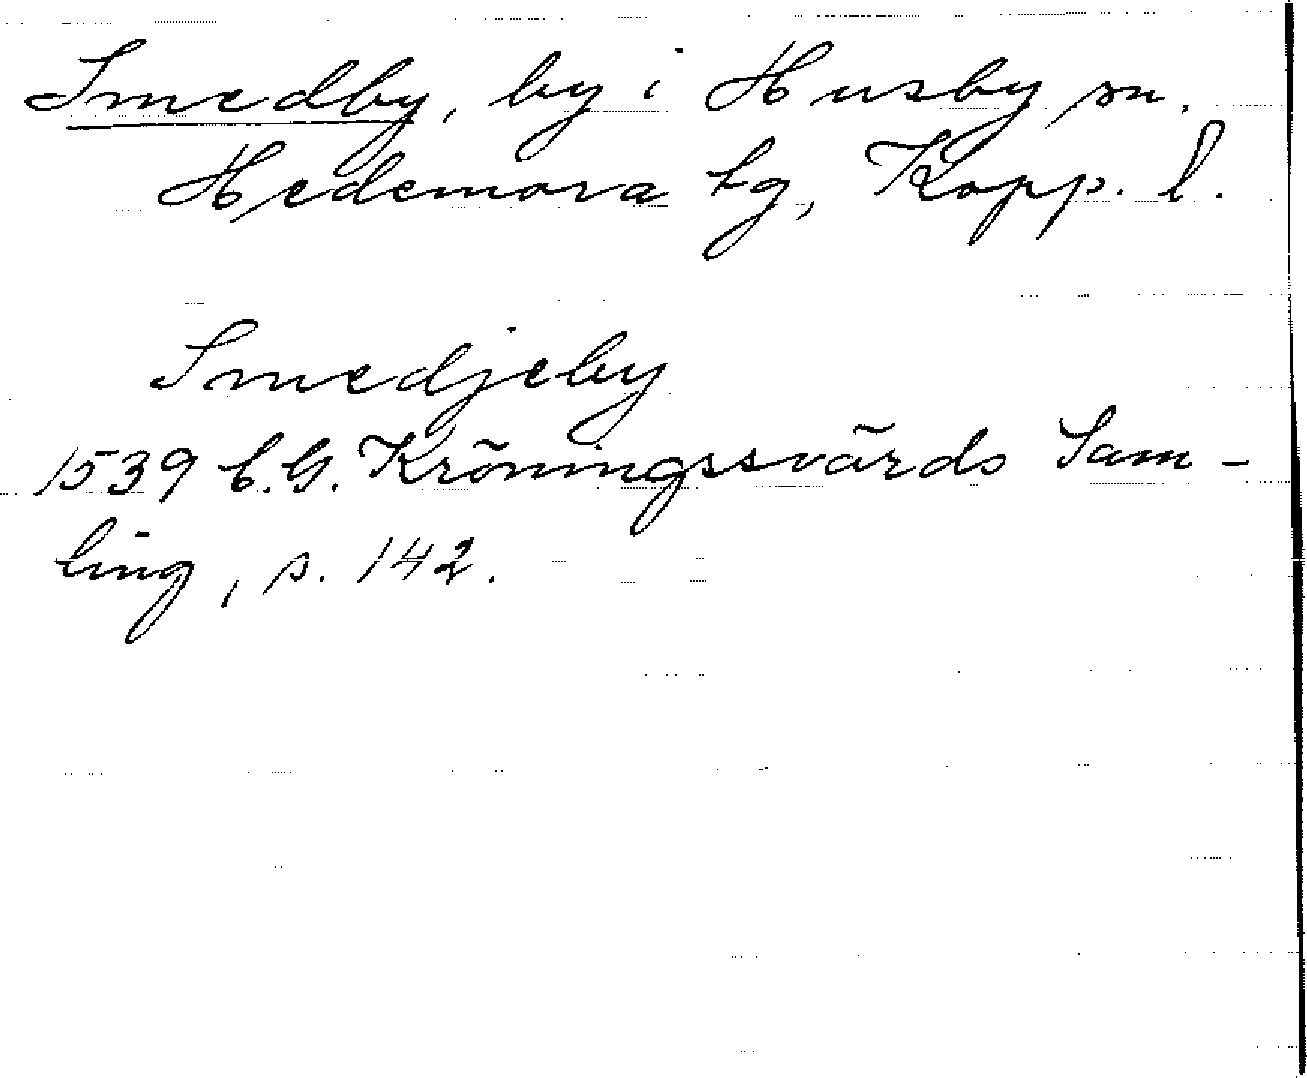 Smedby, by i Husby sn.
Hedemora tg, Kopp. l.
Smedjeby
1539 C.G. Kröningssvärds Sam-
ling, s. 142.